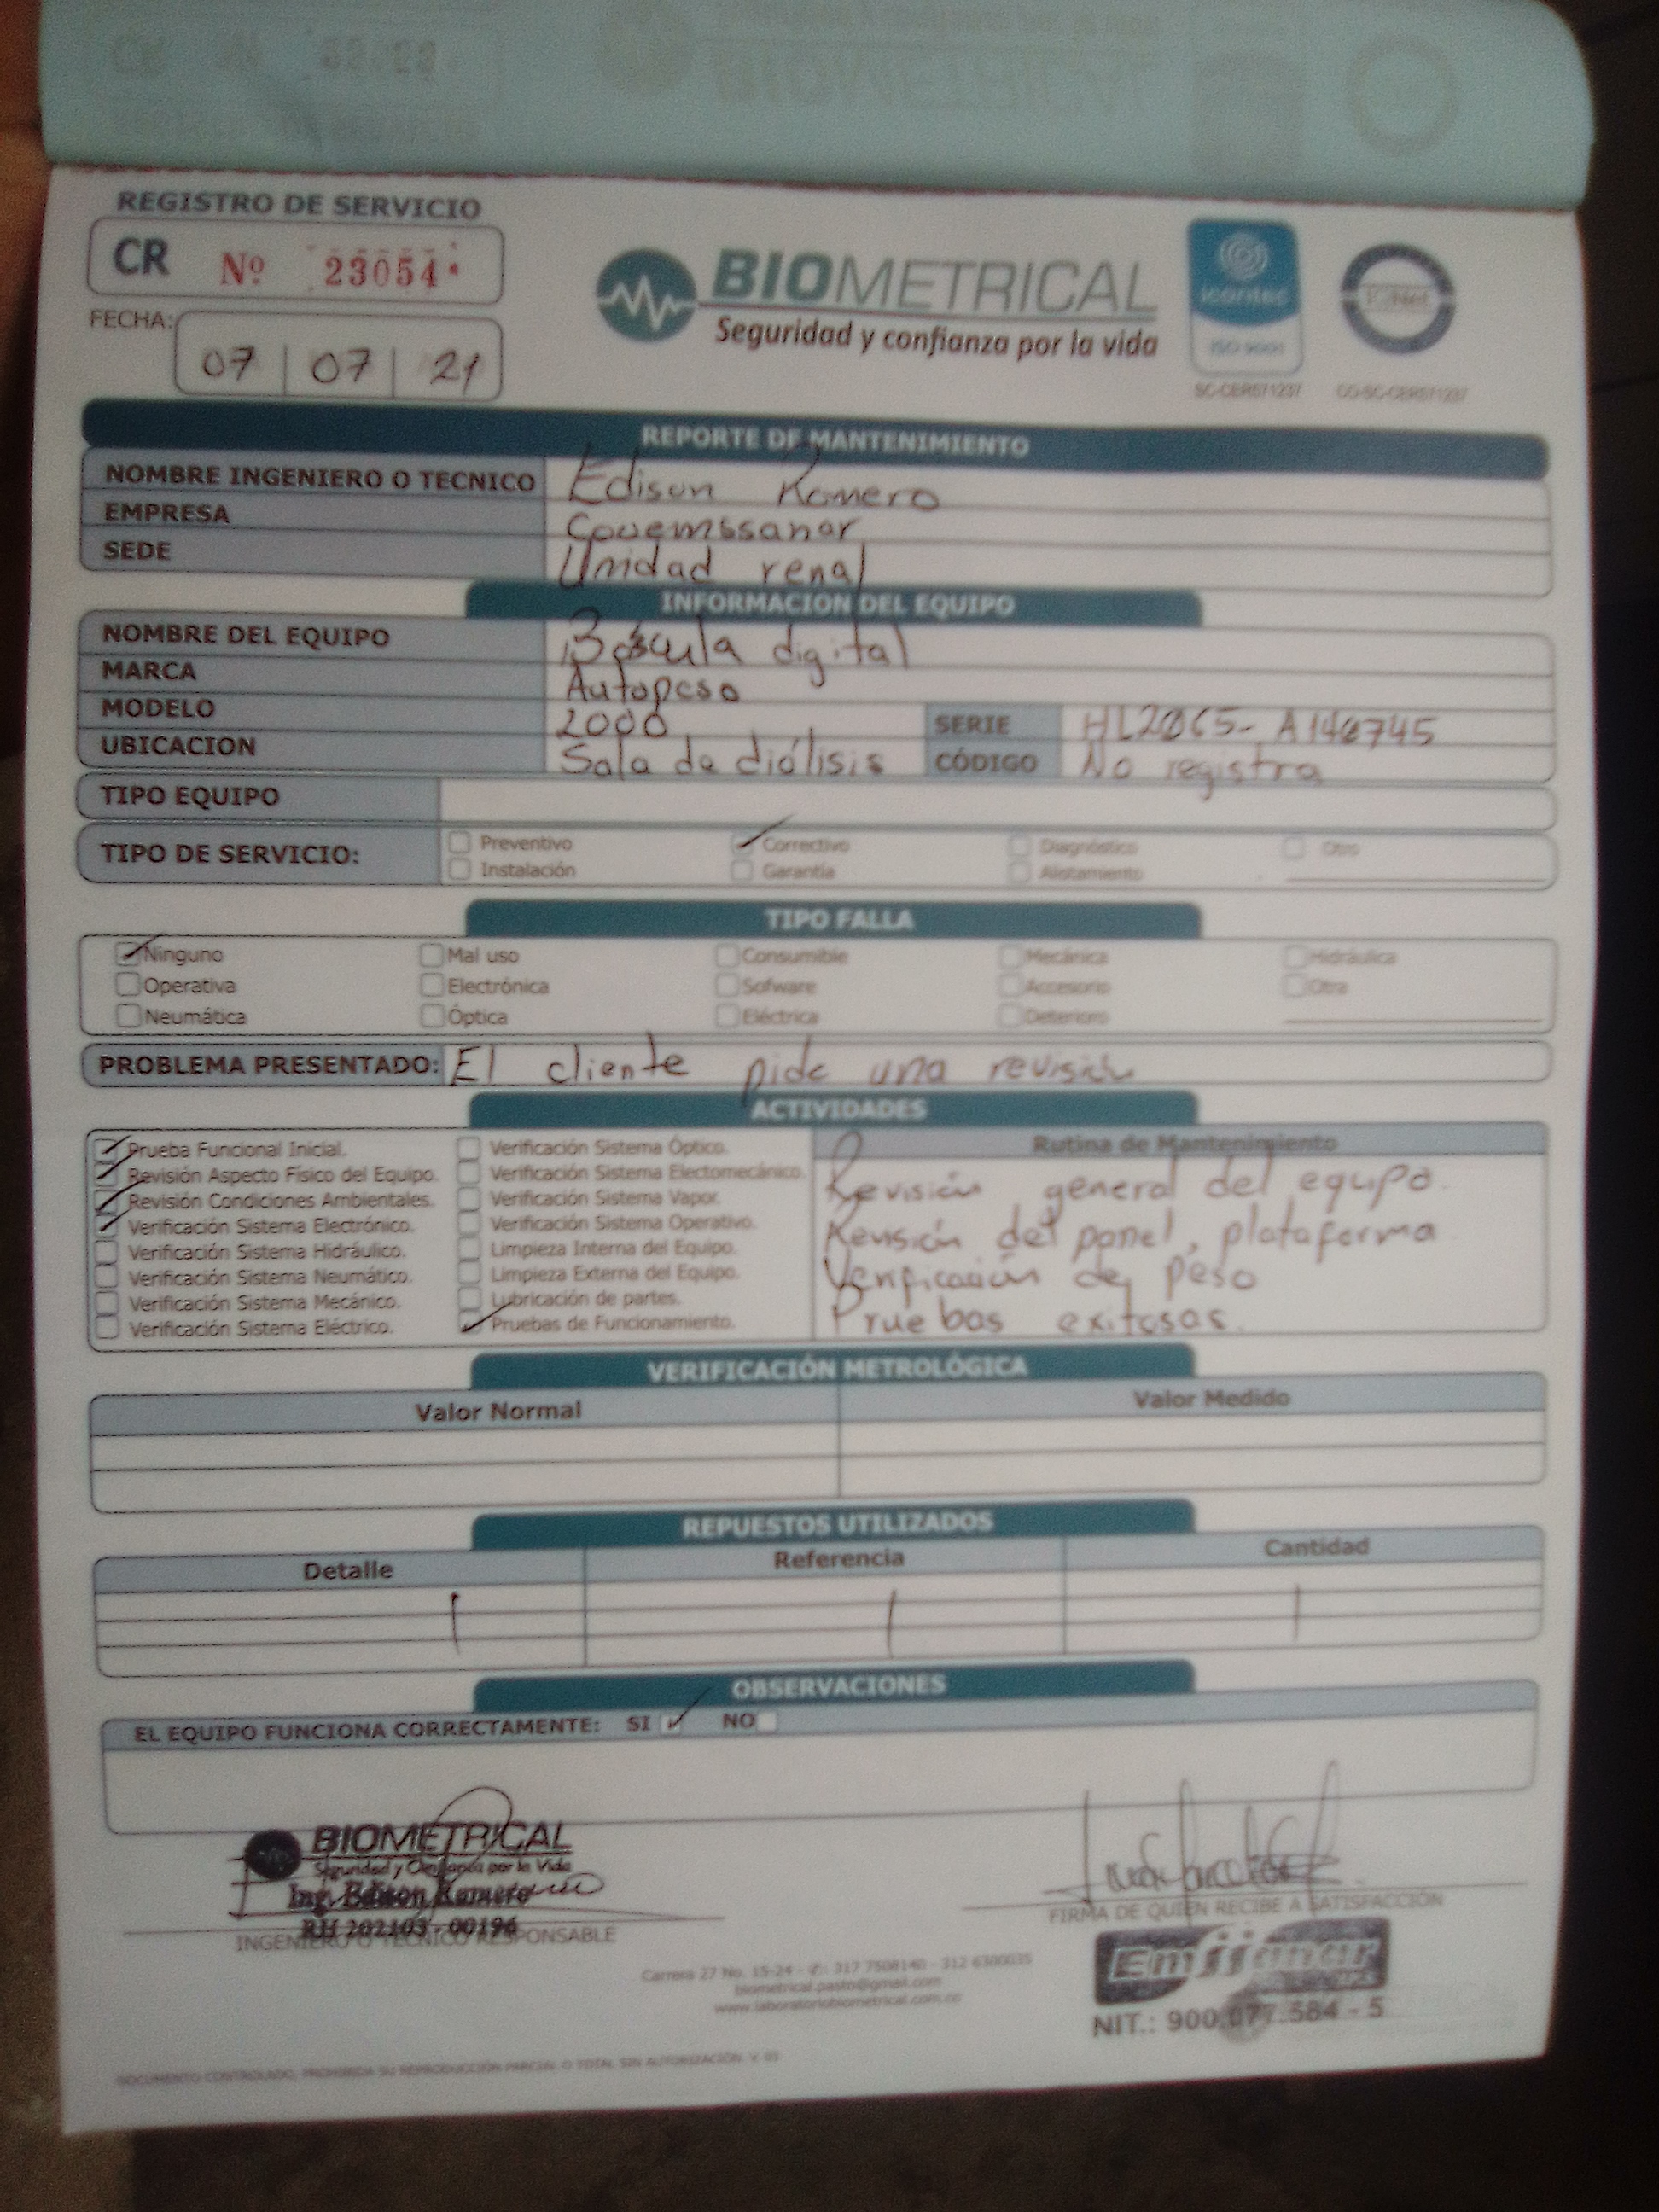 REGISTRO DE SERVICIO
CR Nº 23054
FECHA: 07 | 07 | 21
BIOMETRICAL
Seguridad y confianza por la vida
icontec
ISO 9001
IQNet
SC-CER571237 CO-SC-CER571237
REPORTE DE MANTENIMIENTO
NOMBRE INGENIERO O TECNICO Edison Romero
EMPRESA Couemssanar
SEDE Unidad renal
INFORMACION DEL EQUIPO
NOMBRE DEL EQUIPO Báscula digital
MARCA Autopeso
MODELO 2000 SERIE
UBICACION Sala de diálisis CÓDIGO No registra
TIPO EQUIPO
TIPO DE SERVICIO: Preventivo Correctivo Diagnóstico Otro
Instalación Garantía Alistamiento
TIPO FALLA
Ninguno Mal uso Consumible Mecánica Hidráulica
Operativa Electrónica Sofware Accesorio Otra
Neumática Óptica Eléctrica Deterioro
PROBLEMA PRESENTADO: El cliente pide una revisión
ACTIVIDADES
Prueba Funcional Inicial. Verificación Sistema Óptico. Rutina de Mantenimiento
Revisión Aspecto Físico del Equipo. Verificación Sistema Electomecánico. Revisión general del equipo.
Revisión Condiciones Ambientales. Verificación Sistema Vapor.
Verificación Sistema Electrónico. Verificación Sistema Operativo. Revisión del panel, plataforma
Verificación Sistema Hidráulico. Limpieza Interna del Equipo.
Verificación Sistema Neumático. Limpieza Externa del Equipo. Verificación de peso
Verificación Sistema Mecánico. Lubricación de partes.
Verificación Sistema Eléctrico. Pruebas de Funcionamiento. Pruebas exitosas.
VERIFICACIÓN METROLÓGICA
Valor Normal Valor Medido
REPUESTOS UTILIZADOS
Detalle Referencia Cantidad
OBSERVACIONES
EL EQUIPO FUNCIONA CORRECTAMENTE: SI NO
BIOMETRICAL
Seguridad y Confianza por la Vida
Ing. Edison Romero
RH 202103 - 00196
INGENIERO O TECNICO RESPONSABLE
FIRMA DE QUIEN RECIBE A SATISFACCIÓN
Emssanar
NIT.: 900.077.584 - 5
Carrera 27 No. 15-24 - ✆: 317 7508140 - 312 6300035
biometrical.pasto@gmail.com
www.laboratoriobiometrical.com.co
DOCUMENTO CONTROLADO, PROHIBIDA SU REPRODUCCIÓN PARCIAL O TOTAL SIN AUTORIZACIÓN V. 03